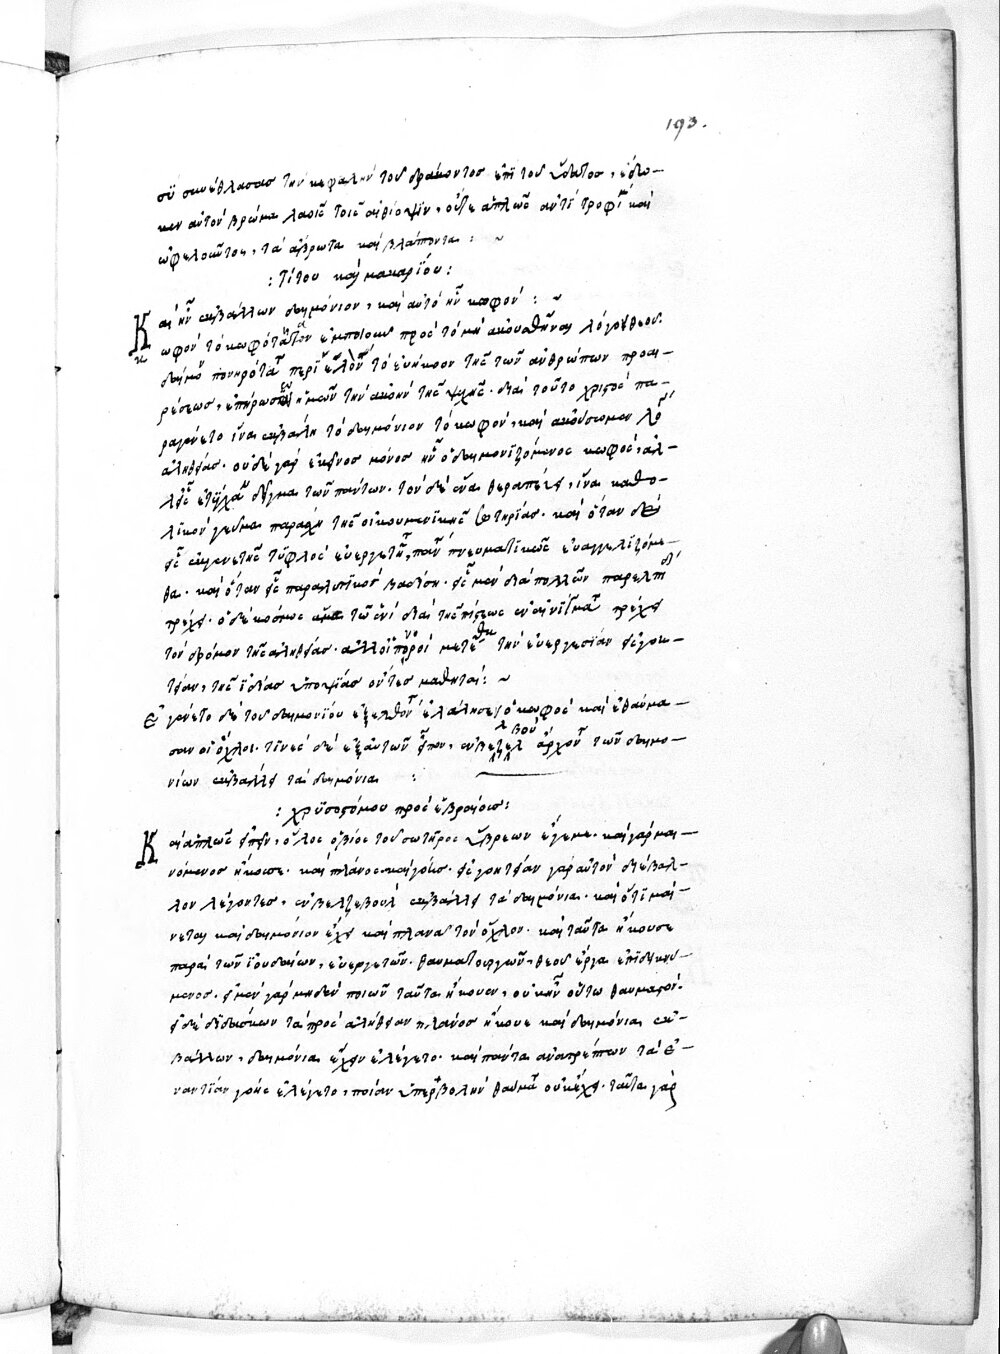 193.
σὺ συνέθλασας τὴν κεφαλὴν τοῦ δράκοντος ἐπὶ τοῦ ὕδατος, ἔδω-
κεν αὐτὸν βρῶμα λαοῖς τοῖς αἰθίοψιν, οὔτε ἁπλῶς ἀντὶ τροφῆς καὶ
ὠφελοῦντος, τὰ ἄβρωτα καὶ βλάπτοντα :~
: Τίτου καὶ μακαρίου :
Καὶ ἦν ἐκβάλλων δαιμόνιον, καὶ αὐτὸ ἦν κωφόν :~
κωφὸν τὸ κωφότητα ἐμποιοῦν πρὸς τὸ μὴ ἀκουσθῆναι λόγον θεοῦ.
δαίμων πονηρότα περιελὼν τὸ εὐήκοον τῆς τῶν ἀνθρώπων προαι-
ρέσεως, ἐπήρωσεν ἡμῶν τὴν ἀκοὴν τῆς ψυχῆς. διὰ τοῦτο χριστὸς πα-
ραγίνεται ἵνα ἐκβάλῃ τὸ δαιμόνιον τὸ κωφόν, καὶ ἀκούσωμεν λόγον
ἀληθείας. οὐδὲ γὰρ ἐκεῖνος μόνος ἦν ὁ δαιμονιζόμενος κωφός, ἀλ-
λ' εἷς ἐτύχαν δεῖγμα τῶν πάντων. τὸν δὲ ἕνα θεραπεύει, ἵνα καθο-
λικὸν γεῦμα παράσχῃ τῆς οἰκουμενικῆς σωτηρίας. καὶ ὅταν δὲ
εἷς ἐκ γενετῆς τυφλὸς εὐεργετῆται, πᾶν πνευματικῶς εὐαγγελιζόμε-
θα. καὶ ὅταν εἷς παραλυτικὸς βαδίσῃ. εἷς μὲν διὰ πολλῶν παρελπίδι
τρέχει. ὁ δὲ κόσμος τῷ ἑνὶ διὰ τῆς πίστεως τρέχει
τὸν δρόμον τῆς ἀληθείας. ἀλλ' οἱ πονηροὶ μετὰ τὴν εὐεργεσίαν
τῆς ἰδίας ὑποψίας ὄντες μαθηταί :~
Ἐγένετο δὲ τοῦ δαιμονίου ἐξελθόντος ἐλάλησεν ὁ κωφός καὶ ἐθαύμα-
σαν οἱ ὄχλοι. τινὲς δὲ ἐξ αὐτῶν εἶπον, ἐν βεελζεβοὺλ ἄρχοντι τῶν δαιμο-
νίων ἐκβάλλει τὰ δαιμόνια :
: χρυσοστόμου πρὸς ἑβραίους :
Καὶ ἁπλῶς εἰπεῖν, ὅλος ὁ βίος τοῦ σωτῆρος ὕβρεων ἔγεμε. καὶ γὰρ μαι-
νόμενος ἤκουσε. καὶ πλάνος καὶ γόης. γὰρ αὐτὸν διέβαλ-
λον λέγοντες, ἐν βεελζεβοὺλ ἐκβάλλει τὰ δαιμόνια. καὶ ὅτι μαί-
νεται καὶ δαιμόνιον ἔχει καὶ πλανᾷ τὸν ὄχλον. καὶ ταῦτα ἤκουσε
παρὰ τῶν ἰουδαίων, εὐεργετῶν. θαυματουργῶν, θεοῦ ἔργα ἐπιδεικνύ-
μενος. εἰ μὲν γὰρ μηδὲν ποιῶν ταῦτα ἤκουεν, οὐκ ἦν οὕτω θαυμαστόν.
εἰ δὲ διδάσκων τὰ πρὸς ἀλήθειαν πλάνος ἤκουε καὶ δαιμόνια ἐκ-
βάλλων, δαιμόνια ἔχειν ἐλέγετο. καὶ πάντα ἀνατρέπων τὰ ἐ-
ναντίαν γόης ἐλέγετο, ποίαν ὑπερβολὴν θαύματος οὐκ ἔχει. ταῦτα γὰρ